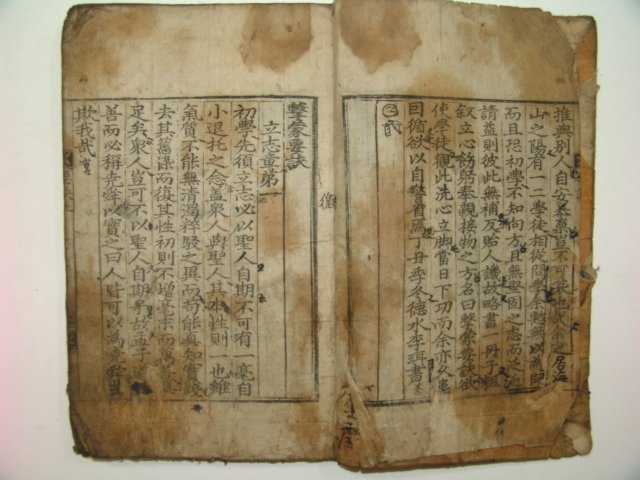 推與別人自安暴棄豈不可哀也哉余定居海
山之陽有一二學徒相從問學余慙無以爲師
而且恐初學不知向方且無堅固之志而泛泛
請益則彼此無補反貽人譏故略書一冊子粗
叙立心飭躬奉親接物之方名曰擊蒙要訣欲
使學徒觀此洗心立脚當日下功而余亦久患
因循欲以自警省焉丁丑季冬德水李珥書
擊蒙要訣
立志章第一
初學先須立志必以聖人自期不可有一毫自
小退托之念盖衆人與聖人其本性則一也雖
氣質不能無清濁粹駁之異而苟能真知實踐
去其舊染而復其性初則不增毫末而萬善具
足矣衆人豈可不以聖人自期乎故孟子道性
善而必稱堯舜以實之曰人皆可以爲堯舜豈
欺我哉